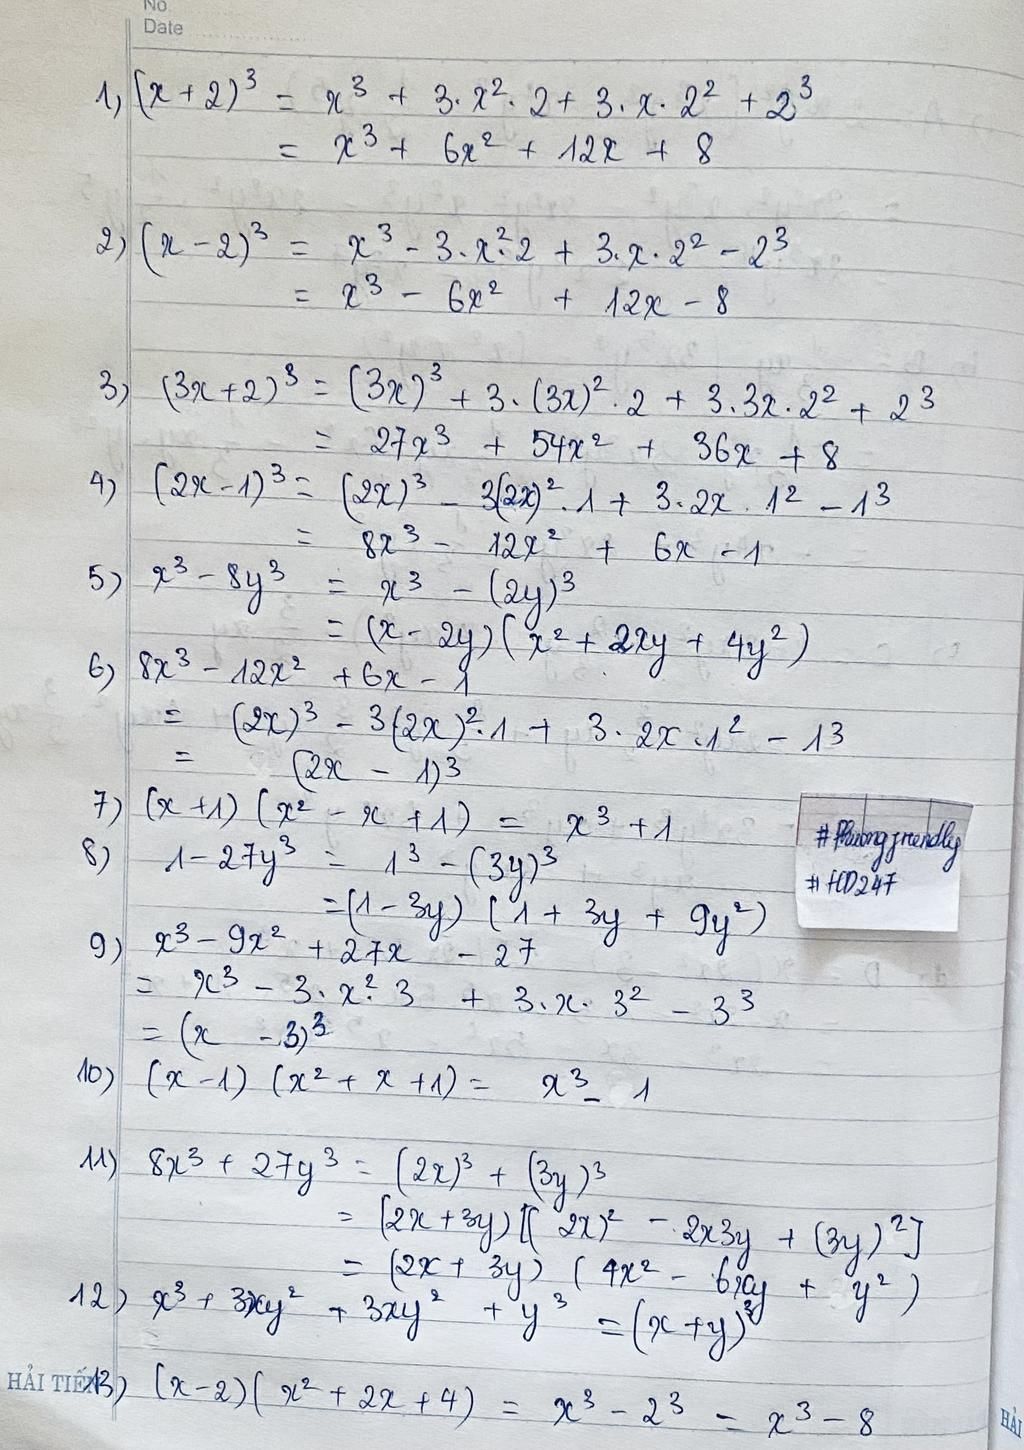 No.
Date
1) (x+2)³ = x³ + 3.x².2 + 3.x.2² + 2³
= x³ + 6x² + 12x + 8
2) (x-2)³ = x³ - 3.x².2 + 3.x.2² - 2³
= x³ - 6x² + 12x - 8
3) (3x+2)³ = (3x)³ + 3.(3x)².2 + 3.3x.2² + 2³
= 27x³ + 54x² + 36x + 8
4) (2x-1)³ = (2x)³ - 3(2x)².1 + 3.2x.1² - 1³
= 8x³ - 12x² + 6x - 1
5) x³ - 8y³ = x³ - (2y)³
= (x - 2y)(x² + 2xy + 4y²)
6) 8x³ - 12x² + 6x - 1
= (2x)³ - 3(2x)².1 + 3.2x.1² - 1³
= (2x - 1)³
7) (x+1)(x² - x + 1) = x³ + 1
8) 1 - 27y³ = 1³ - (3y)³
= (1 - 3y)(1 + 3y + 9y²)
#Phuongfriendly
#HD247
9) x³ - 9x² + 27x - 27
= x³ - 3.x².3 + 3.x.3² - 3³
= (x - 3)³
10) (x-1)(x² + x + 1) = x³ - 1
11) 8x³ + 27y³ = (2x)³ + (3y)³
= (2x+3y)[(2x)² - 2x3y + (3y)²]
= (2x + 3y)(4x² - 6xy + y²)
12) x³ + 3xy² + 3xy² + y³ = (x+y)³
=
13) (x-2)(x² + 2x + 4) = x³ - 2³ = x³ - 8
HẢI TIẾN
HẢI